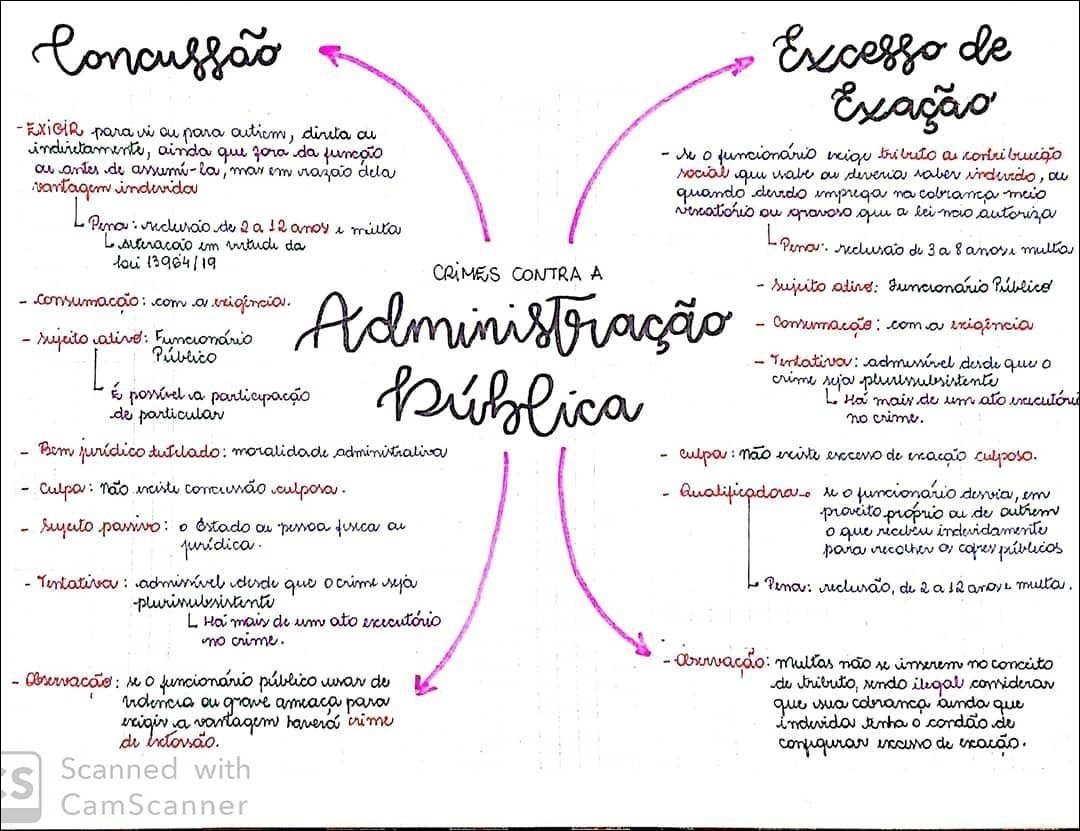 Concussão
- EXIGIR para si ou para outrem, direta ou
indiretamente, ainda que fora da função
ou antes de assumí-la, mas em razão dela
vantagem indevida
Pena: reclusão de 2 a 12 anos e multa
alteração em virtude da
lei 13964/19
- Consumação: com a exigência.
- Sujeito ativo: Funcionário
Público
É possível a participação
de particular
- Bem jurídico tutelado: moralidade administrativa
- Culpa: Não existe concussão culposa.
- Sujeito passivo: o Estado ou pessoa física ou
jurídica.
- Tentativa: admissível desde que o crime seja
plurisubsistente
Há mais de um ato executório
no crime.
- Observação: se o funcionário público usar de
violência ou grave ameaça para
exigir a vantagem haverá crime
de extorsão.
CRIMES CONTRA A
Administração
Pública
Excesso de
Exação
- Se o funcionário exige tributo ou contribuição
social que sabe ou deveria saber indevido, ou
quando devido emprega na cobrança meio
vexatório ou gravoso que a lei não autoriza
Pena: reclusão de 3 a 8 anos e multa
- Sujeito ativo: Funcionário Público
- Consumação: com a exigência
- Tentativa: admissível desde que o
crime seja plurisubsistente
Há mais de um ato executório
no crime.
- Culpa: Não existe excesso de exação culposo.
- Qualificadora se o funcionário desvia, em
proveito próprio ou de outrem
o que recebeu indevidamente
para recolher os cofres públicos
Pena: reclusão, de 2 a 12 anos e multa.
- Observação: Multas não se inserem no conceito
de tributo, sendo ilegal considerar
que sua cobrança ainda que
indevida tenha o condão de
configurar excesso de exação.
CS
Scanned with
CamScanner